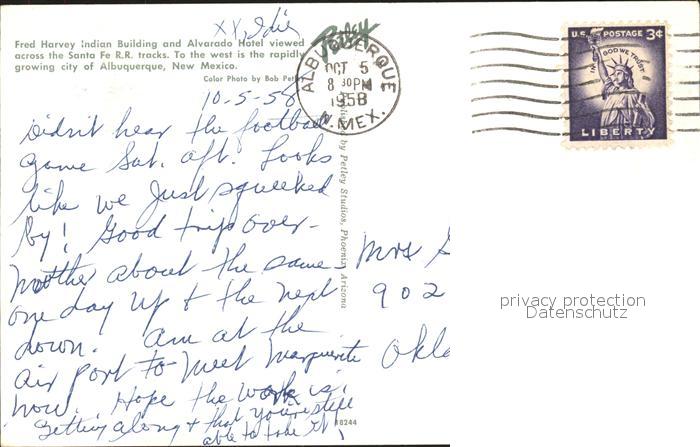 xx, Idii
Petley
Fred Harvey Indian Building and Alvarado Hotel viewed
across the Santa Fe R.R. tracks. To the west is the rapidly
growing city of Albuquerque, New Mexico.
Color Photo by Bob Petley
ALBUQUERQUE
OCT 5
8 30 PM
1958
N. MEX.
U.S. POSTAGE 3¢
IN GOD WE TRUST
LIBERTY
10-5-58
Didn't hear the football
game Sat. aft. Looks
like we just squeeked
by! Good trip over-
Mother about the same
one day up & the next
down. Am at the
air port to meet Marguerite
now. Hope the work is
getting along & that you're still
able to take it!
Published by Petley Studios, Phoenix, Arizona
Mrs
902
Okla
privacy protection
Datenschutz
18244